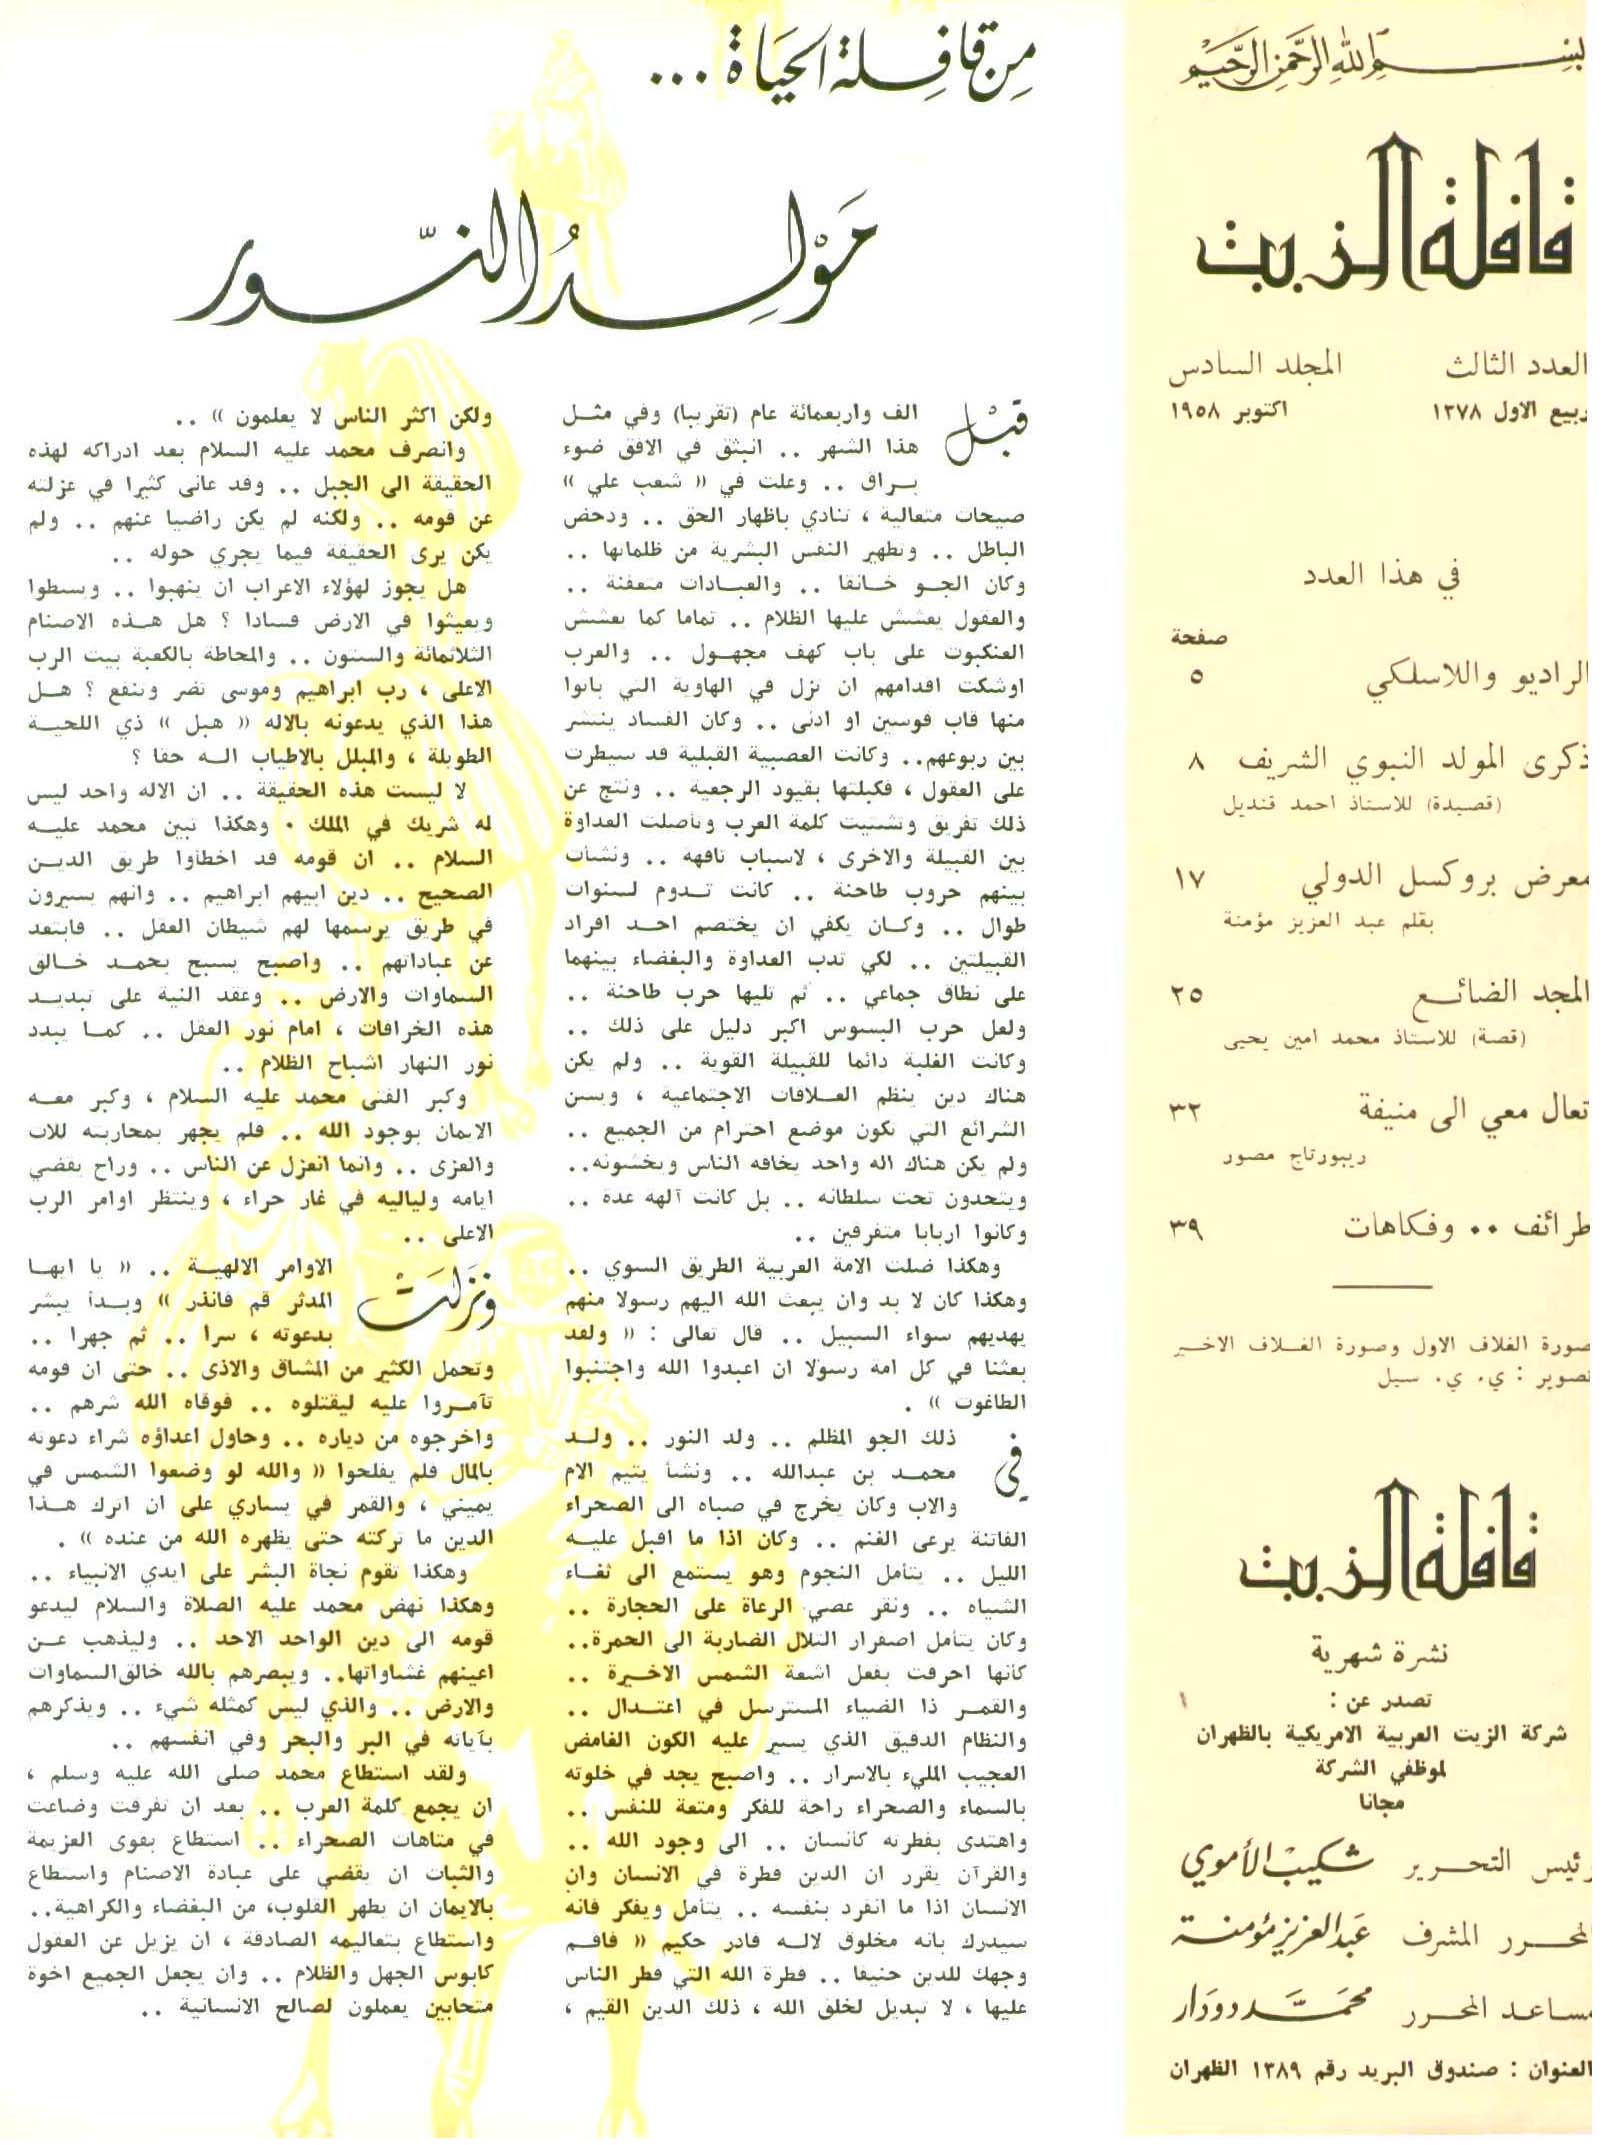 بسم الله الرحمن الرحيم
قافلة الزيت
العدد الثالث المجلد السادس
ربيع الاول ١٣٧٨ اكتوبر ١٩٥٨
في هذا العدد
صفحة
الراديو واللاسلكي ٥
ذكرى المولد النبوي الشريف ٨
(قصيدة) للاستاذ احمد قنديل
معرض بروكسل الدولي ١٧
بقلم عبد العزيز مؤمنة
المجد الضائع ٢٥
(قصة) للاستاذ محمد امين يحيى
تعال معي الى منيفة ٣٢
ريبورتاج مصور
طرائف .. وفكاهات ٣٩
صورة الغلاف الاول وصورة الغلاف الاخير
تصوير : ي. ي. سيل
قافلة الزيت
نشرة شهرية
تصدر عن :
شركة الزيت العربية الامريكية بالظهران
لموظفي الشركة
مجانا
رئيس التحرير شكيب الأموي
المحرر المشرف عبد العزيز مؤمنة
مساعد المحرر محمد دودار
العنوان : صندوق البريد رقم ١٣٨٩ الظهران
من قافلة الحياة ...
مَوْلِدُ النّور
قبْل الف واربعمائة عام (تقريبا) وفي مثل
هذا الشهر .. انبثق في الافق ضوء
براق .. وعلت في « شعب علي »
صيحات متعالية ، تنادي باظهار الحق .. ودحض
الباطل .. وتطهير النفس البشرية من ظلماتها ..
وكان الجو خانقا .. والعبادات متعفنة ..
والعقول يعشش عليها الظلام .. تماما كما يعشش
العنكبوت على باب كهف مجهول .. والعرب
اوشكت اقدامهم ان تزل في الهاوية التي باتوا
منها قاب قوسين او ادنى .. وكان الفساد ينتشر
بين ربوعهم.. وكانت العصبية القبلية قد سيطرت
على العقول ، فكبلتها بقيود الرجعية .. ونتج عن
ذلك تفريق وتشتيت كلمة العرب وتأصلت العداوة
بين القبيلة والاخرى ، لاسباب تافهه .. ونشأت
بينهم حروب طاحنة .. كانت تدوم لسنوات
طوال .. وكان يكفي ان يختصم احد افراد
القبيلتين .. لكي تدب العداوة والبغضاء بينهما
على نطاق جماعي .. ثم تليها حرب طاحنة ..
ولعل حرب البسوس اكبر دليل على ذلك ..
وكانت الغلبة دائما للقبيلة القوية .. ولم يكن
هناك دين ينظم العلاقات الاجتماعية ، ويسن
الشرائع التي تكون موضع احترام من الجميع ..
ولم يكن هناك اله واحد يخافه الناس ويخشونه..
ويتحدون تحت سلطانه .. بل كانت آلهه عدة ..
وكانوا اربابا متفرقين ..
وهكذا ضلت الامة العربية الطريق السوي ..
وهكذا كان لا بد وان يبعث الله اليهم رسولا منهم
يهديهم سواء السبيل .. قال تعالى : « ولقد
بعثنا في كل امة رسولا ان اعبدوا الله واجتنبوا
الطاغوت » .
في ذلك الجو المظلم .. ولد النور .. ولد
محمد بن عبدالله .. ونشأ يتيم الام
والاب وكان يخرج في صباه الى الصحراء
الفاتنة يرعى الغنم .. وكان اذا ما اقبل عليه
الليل .. يتأمل النجوم وهو يستمع الى ثغاء
الشياه .. ونقر عصي الرعاة على الحجارة ..
وكان يتأمل اصفرار التلال الضاربة الى الحمرة..
كأنها احرقت بفعل اشعة الشمس الاخيرة ..
والقمر ذا الضياء المسترسل في اعتدال ..
والنظام الدقيق الذي يسير عليه الكون الغامض
العجيب المليء بالاسرار .. واصبح يجد في خلوته
بالسماء والصحراء راحة للفكر ومتعة للنفس ..
واهتدى بفطرته كانسان .. الى وجود الله ..
والقرآن يقرر ان الدين فطرة في الانسان وان
الانسان اذا ما انفرد بنفسه .. يتأمل ويفكر فانه
سيدرك بانه مخلوق لاله قادر حكيم « فاقم
وجهك للدين حنيفا .. فطرة الله التي فطر الناس
عليها ، لا تبديل لخلق الله ، ذلك الدين القيم ،
ولكن اكثر الناس لا يعلمون » ..
وانصرف محمد عليه السلام بعد ادراكه لهذه
الحقيقة الى الجبل .. وقد عانى كثيرا في عزلته
عن قومه .. ولكنه لم يكن راضيا عنهم .. ولم
يكن يرى الحقيقة فيما يجري حوله ..
هل يجوز لهؤلاء الاعراب ان ينهبوا .. ويسطوا
ويعيثوا في الارض فسادا ؟ هل هذه الاصنام
الثلاثمائة والستون .. والمحاطة بالكعبة بيت الرب
الاعلى ، رب ابراهيم وموسى تضر وتنفع ؟ هل
هذا الذي يدعونه بالاله « هبل » ذي اللحية
الطويلة ، والمبلل بالاطياب اله حقا ؟
لا ليست هذه الحقيقة .. ان الاله واحد ليس
له شريك في الملك . وهكذا تبين محمد عليه
السلام .. ان قومه قد اخطأوا طريق الدين
الصحيح .. دين ابيهم ابراهيم .. وانهم يسيرون
في طريق يرسمها لهم شيطان العقل .. فابتعد
عن عباداتهم .. واصبح يسبح بحمد خالق
السماوات والارض .. وعقد النية على تبديد
هذه الخرافات ، امام نور العقل .. كما يبدد
نور النهار اشباح الظلام ..
وكبر الفتى محمد عليه السلام ، وكبر معه
الايمان بوجود الله .. فلم يجهر بمحاربته للات
والعزى .. وانما انعزل عن الناس .. وراح يقضي
ايامه ولياليه في غار حراء ، وينتظر اوامر الرب
الاعلى ..
ونزلت الاوامر الالهية .. « يا ايها
المدثر قم فانذر » وبدأ يبشر
بدعوته ، سرا .. ثم جهرا ..
وتحمل الكثير من المشاق والاذى .. حتى ان قومه
تآمروا عليه ليقتلوه .. فوقاه الله شرهم ..
واخرجوه من دياره .. وحاول اعداؤه شراء دعوته
بالمال فلم يفلحوا « والله لو وضعوا الشمس في
يميني ، والقمر في يساري على ان اترك هذا
الدين ما تركته حتى يظهره الله من عنده » .
وهكذا تقوم نجاة البشر على ايدي الانبياء ..
وهكذا نهض محمد عليه الصلاة والسلام ليدعو
قومه الى دين الواحد الاحد .. وليذهب عن
اعينهم غشاواتها.. ويبصرهم بالله خالق السماوات
والارض .. والذي ليس كمثله شيء .. ويذكرهم
بآياته في البر والبحر وفي انفسهم ..
ولقد استطاع محمد صلى الله عليه وسلم ،
ان يجمع كلمة العرب .. بعد ان تفرقت وضاعت
في متاهات الصحراء .. استطاع بقوى العزيمة
والثبات ان يقضي على عبادة الاصنام واستطاع
بالايمان ان يطهر القلوب، من البغضاء والكراهية..
واستطاع بتعاليمه الصادقة ، ان يزيل عن العقول
كابوس الجهل والظلام .. وان يجعل الجميع اخوة
متحابين يعملون لصالح الانسانية ..